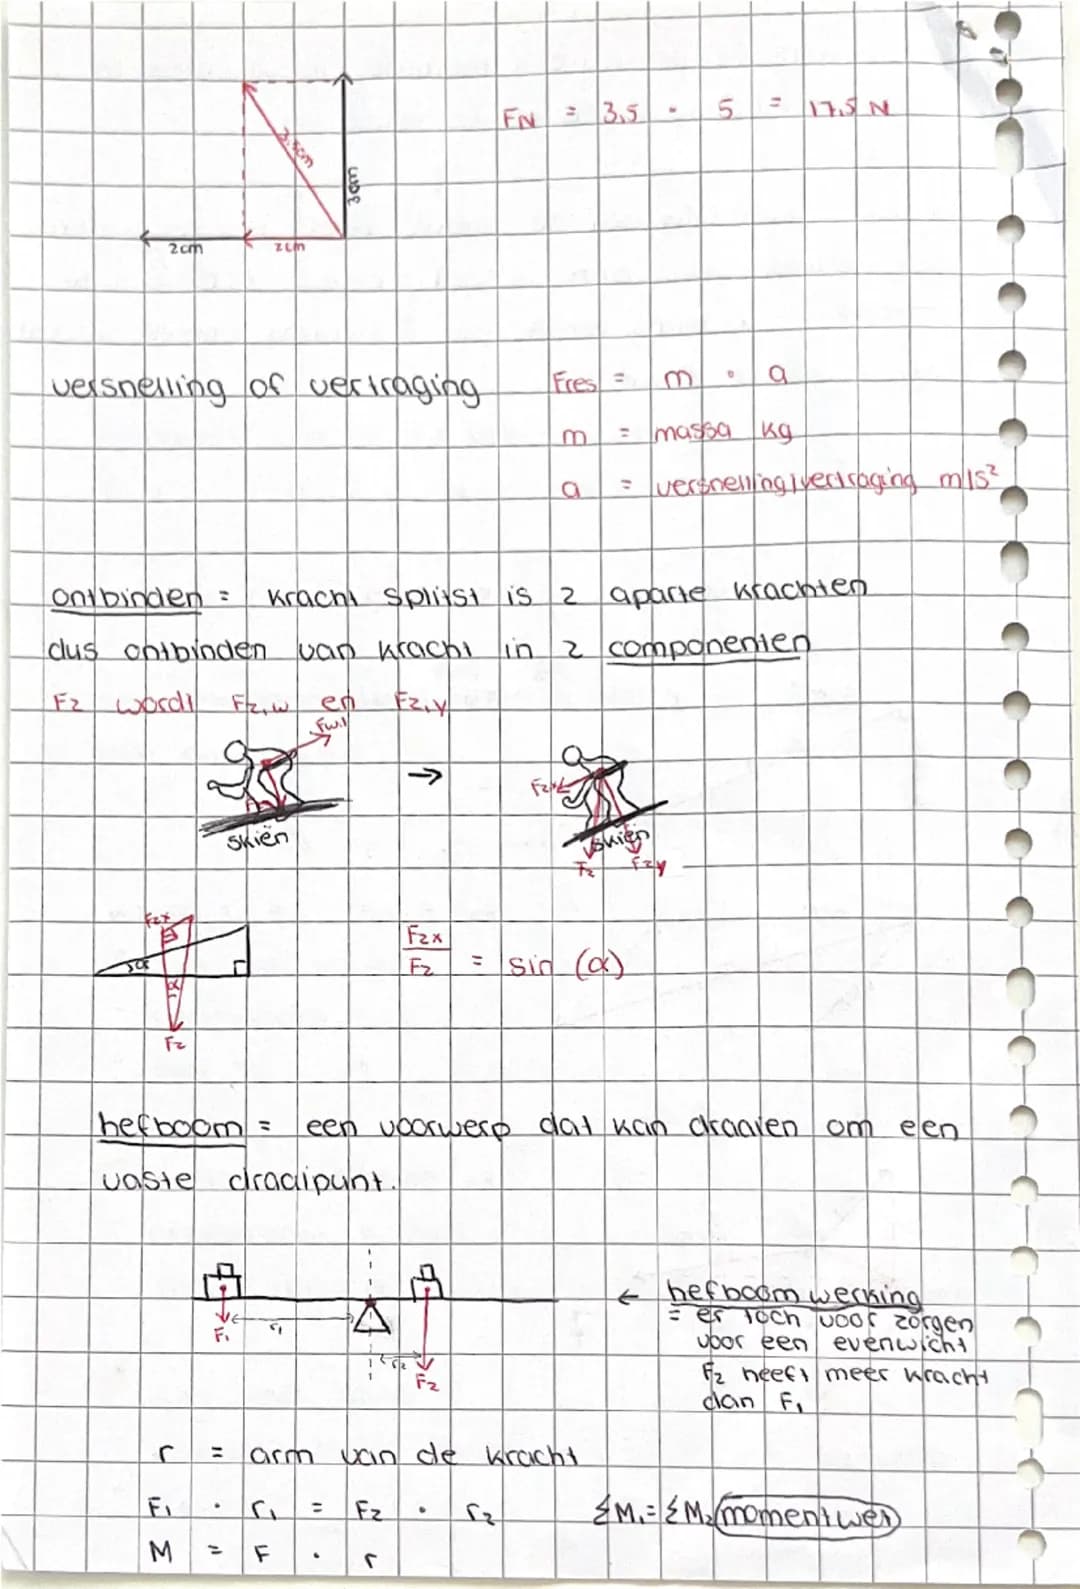 FN = 3,5 · 5 = 17,5 N
3,5cm
3cm
2cm
2cm
versnelling of vertraging
Fres = m · a
m = massa kg
a = versnelling/vertraging m/s²
ontbinden = kracht splitst is 2 aparte krachten
dus ontbinden van kracht in 2 componenten
Fz wordt Fz,w en Fz,y
Fw,l
→
Fzx
skiën
skiën
Fz
Fzy
Fzx
α
Fz
Fzx / Fz = sin (α)
hefboom = een voorwerp dat kan draaien om een
vaste draaipunt.
F₁
r₁
r₂
F₂
← hefboom werking
= er toch voor zorgen
voor een evenwicht
F₂ heeft meer kracht
dan F₁
r = arm van de kracht
F₁ · r₁ = F₂ · r₂
ΣM₁ = ΣM₂ momentwet
M = F · r